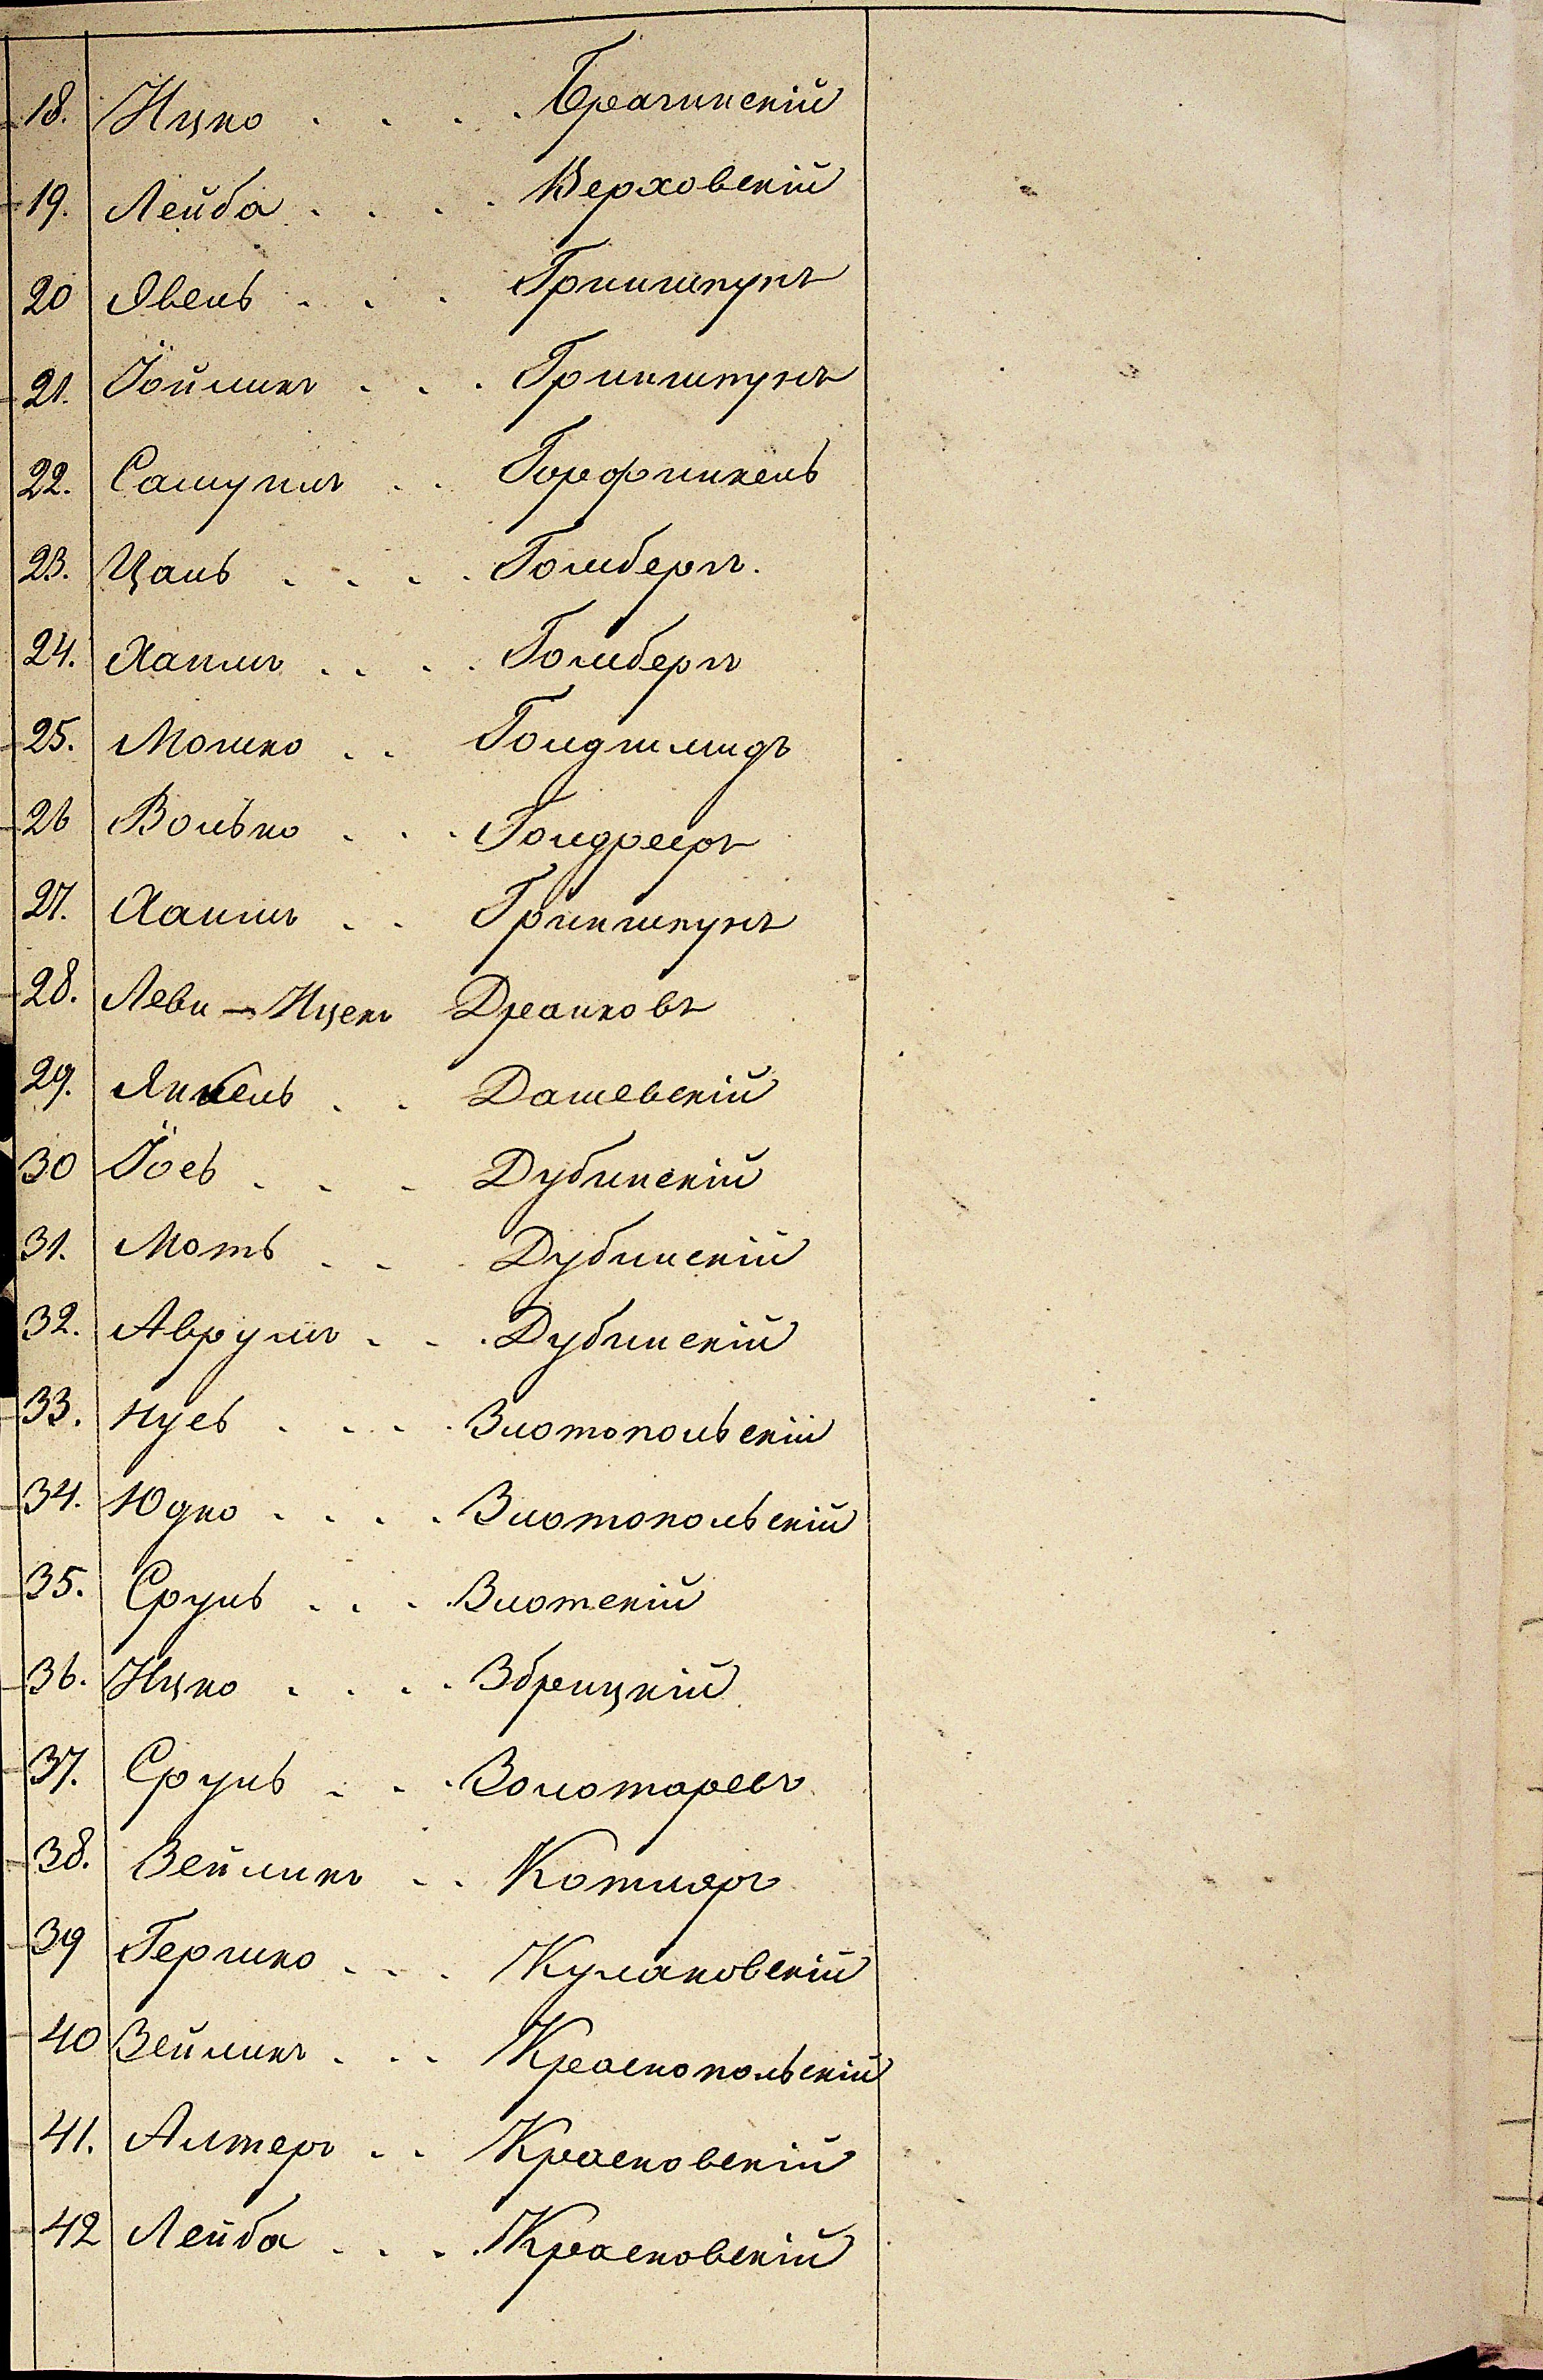 18. Ицко . . . . Брагинскій
19. Лейба . . . . Верховскій
20 Явель . . . Гриншпунъ
21. Іойликъ . . . Гриншпунъ
22. Самуилъ . . Горфинкель
23. Цаль . . . . Голдбергъ.
24. Хаимъ . . . . Голдбергъ
25. Мошко . . Голдшмидъ
26 Волько . . . Голдрееръ
27. Хаимъ . . Гриншпунъ
28. Леви-Ицекъ Драпковъ
29. Янкель . . Дашевскій
30 Іось . . . Дубинскій
31. Моть . . . Дубинскій
32. Аврумъ . . . Дубинскій
33. Нусь . . . . Злотопольскій
34. Юдко . . . . Злотопольскій
35. Сруль . . . Злотскій
36. Ицко . . . . Збрицкій
37. Сруль . . . Золотаревъ
38. Зейликъ . . Котляръ
39 Гершко . . . Кулаковскій
40 Зейликъ . . . Краснопольскій
41. Алтеръ . . Красновскій
42 Лейба . . . Красновскій